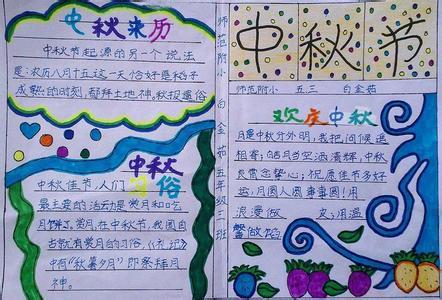 中秋来历
中秋节起源的另一个说法
是:农历八月十五这一天恰好是稻子
成熟的时刻,都拜土地神。秋报遗俗
中秋
习俗
中秋佳节,人们
最主要的活动是赏月和吃
月饼了。赏月,在中秋节,我国自
古就有赏月的习俗,《礼记》
中有"秋暮夕月"即祭拜月
神。
师范附小 白金茹 五年级三班
中秋节
师范附小 五三 白金茹
欢庆中秋
月是中秋分外明,我把问候遥
相寄;皓月当空洒清辉,中秋
良宵念挚心;祝愿佳节多好
运,月圆人圆事事圆!用
浪漫做 皮,用温
馨做馅